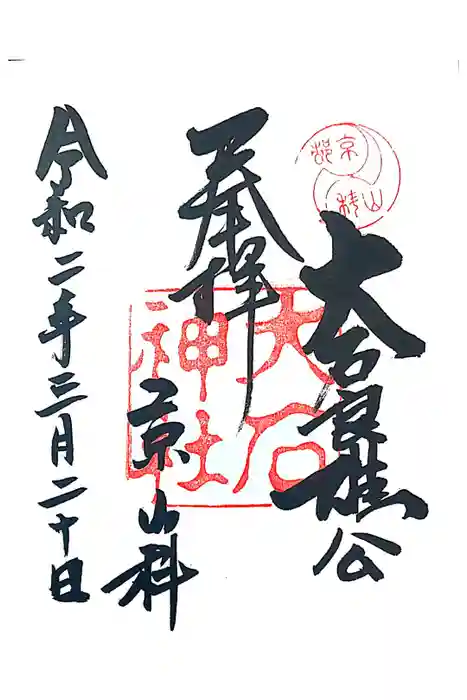 大石良雄公
奉拝
大石
神社
京山科
令和二年三月二十日